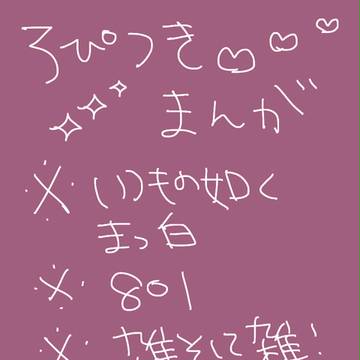 ろぴっき♡♡♡
まんが
※いつもの如く
まっ白
※801
※雑そして雑!